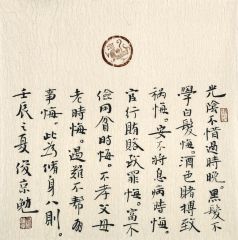 光陰不惜過時晚。黑髮不
學白髮悔。酒色賭博致
禍悔。安不將息病時悔。
官行賄賂致罪悔。富不
儉用貧時悔。不孝父母
老時悔。遇難不幫
事悔。此為脩身八則。
壬辰之夏俊京